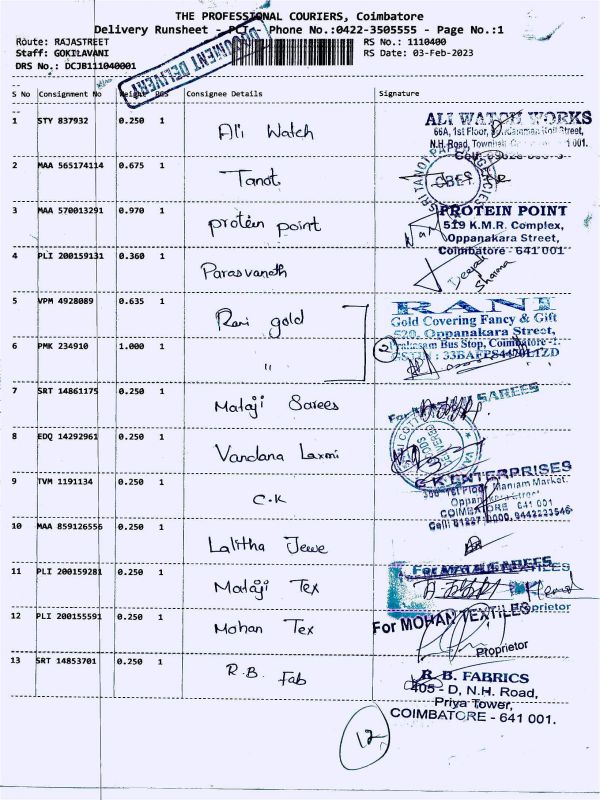 THE PROFESSIONAL COURIERS, Coimbatore
Delivery Runsheet - PCI - Phone No.:0422-3505555 - Page No.:1
Route: RAJASTREET RS No.: 1110400
Staff: GOKILAVANI RS Date: 03-Feb-2023
DRS No.: DCJB111040001
DOCUMENT DELIVERY
S No Consignment No Weight PCS Consignee Details Signature
1 STY 837932 0.250 1 Ali Watch
ALI WATCH WORKS
66A, 1st Floor, Street,
N.H. Road, Townhall 001.
2 MAA 565174114 0.675 1 Tanot
SRI TANOT AGENCIES
CBE-1
3 MAA 570013291 0.970 1 protein point
PROTEIN POINT
519 K.M.R. Complex,
Oppanakara Street,
Coimbatore - 641 001
4 PLI 200159131 0.360 1 Parasvanath
Deepak
Sharma
5 VPM 4928089 0.635 1 Rani gold
RANI
Gold Covering Fancy & Gift
520, Oppanakara Street,
Bus Stop, Coimbatore-1.
6 PMK 234910 1.000 1 "
2
7 SRT 14861175 0.250 1 Mataji Sarees
For SAREES
8 EDQ 14292961 0.250 1 Vandana Laxmi
9 TVM 1191134 0.250 1 C.K
C K ENTERPRISES
1st Floor, Maniam Market,
Oppanakara Street
COIMBATORE 641 001
10 MAA 859126556 0.250 1 Lalitha Jewe
11 PLI 200159281 0.250 1 Mataji Tex
For SAREES
Proprietor
12 PLI 200155591 0.250 1 Mohan Tex
For MOHAN TEXTILES
Proprietor
13 SRT 14853701 0.250 1 R.B. Fab
R. B. FABRICS
405 - D, N.H. Road,
Priya Tower,
COIMBATORE - 641 001.
12